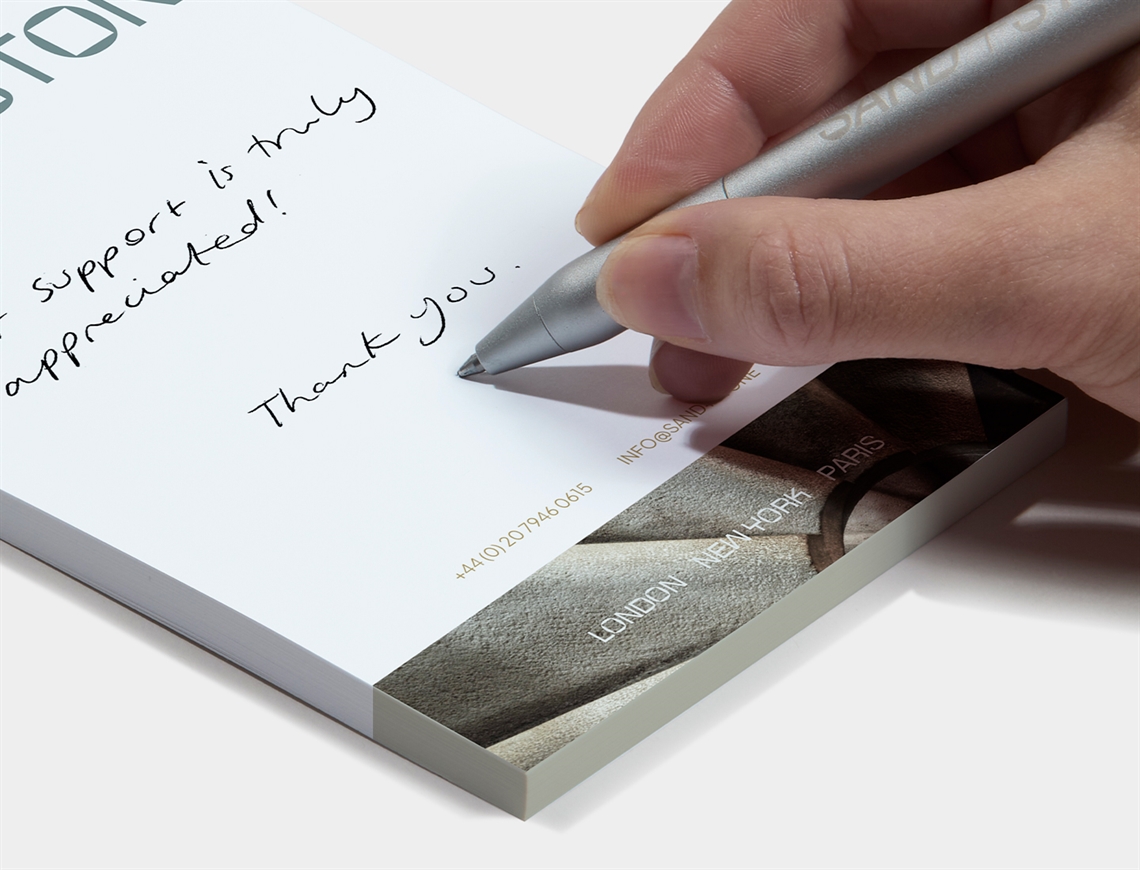 STON
support is truly
appreciated!
Thank you.
SAND / ST
+44 (0) 20 7946 0615
INFO@SAND
LONDON NEW YORK PARIS